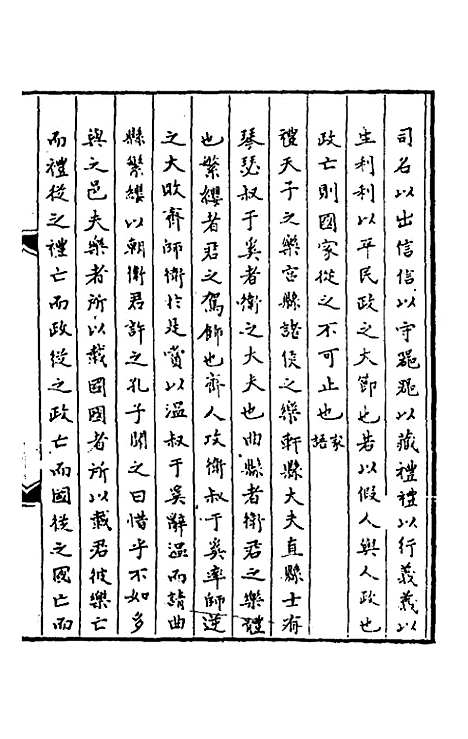 司名以出信信以守器器以藏禮禮以行義義以
生利利以平民政之大節也若以假人與人政也
政亡則國家從之不可止也家語
禮天子之樂宮縣諸侯之樂軒縣大夫直縣士有
琴瑟叔于奚者衛之大夫也曲縣者衛君之樂體
也繁纓者君之駕飾也齊人攻衛叔于奚率師逆
之大敗齊師衛於是賞以溫叔于奚辭溫而請曲
縣繁纓以朝衛君許之孔子聞之曰惜乎不如多
與之邑夫樂者所以載國國者所以載君彼樂亡
而禮從之禮亡而政從之政亡而國從之國亡而